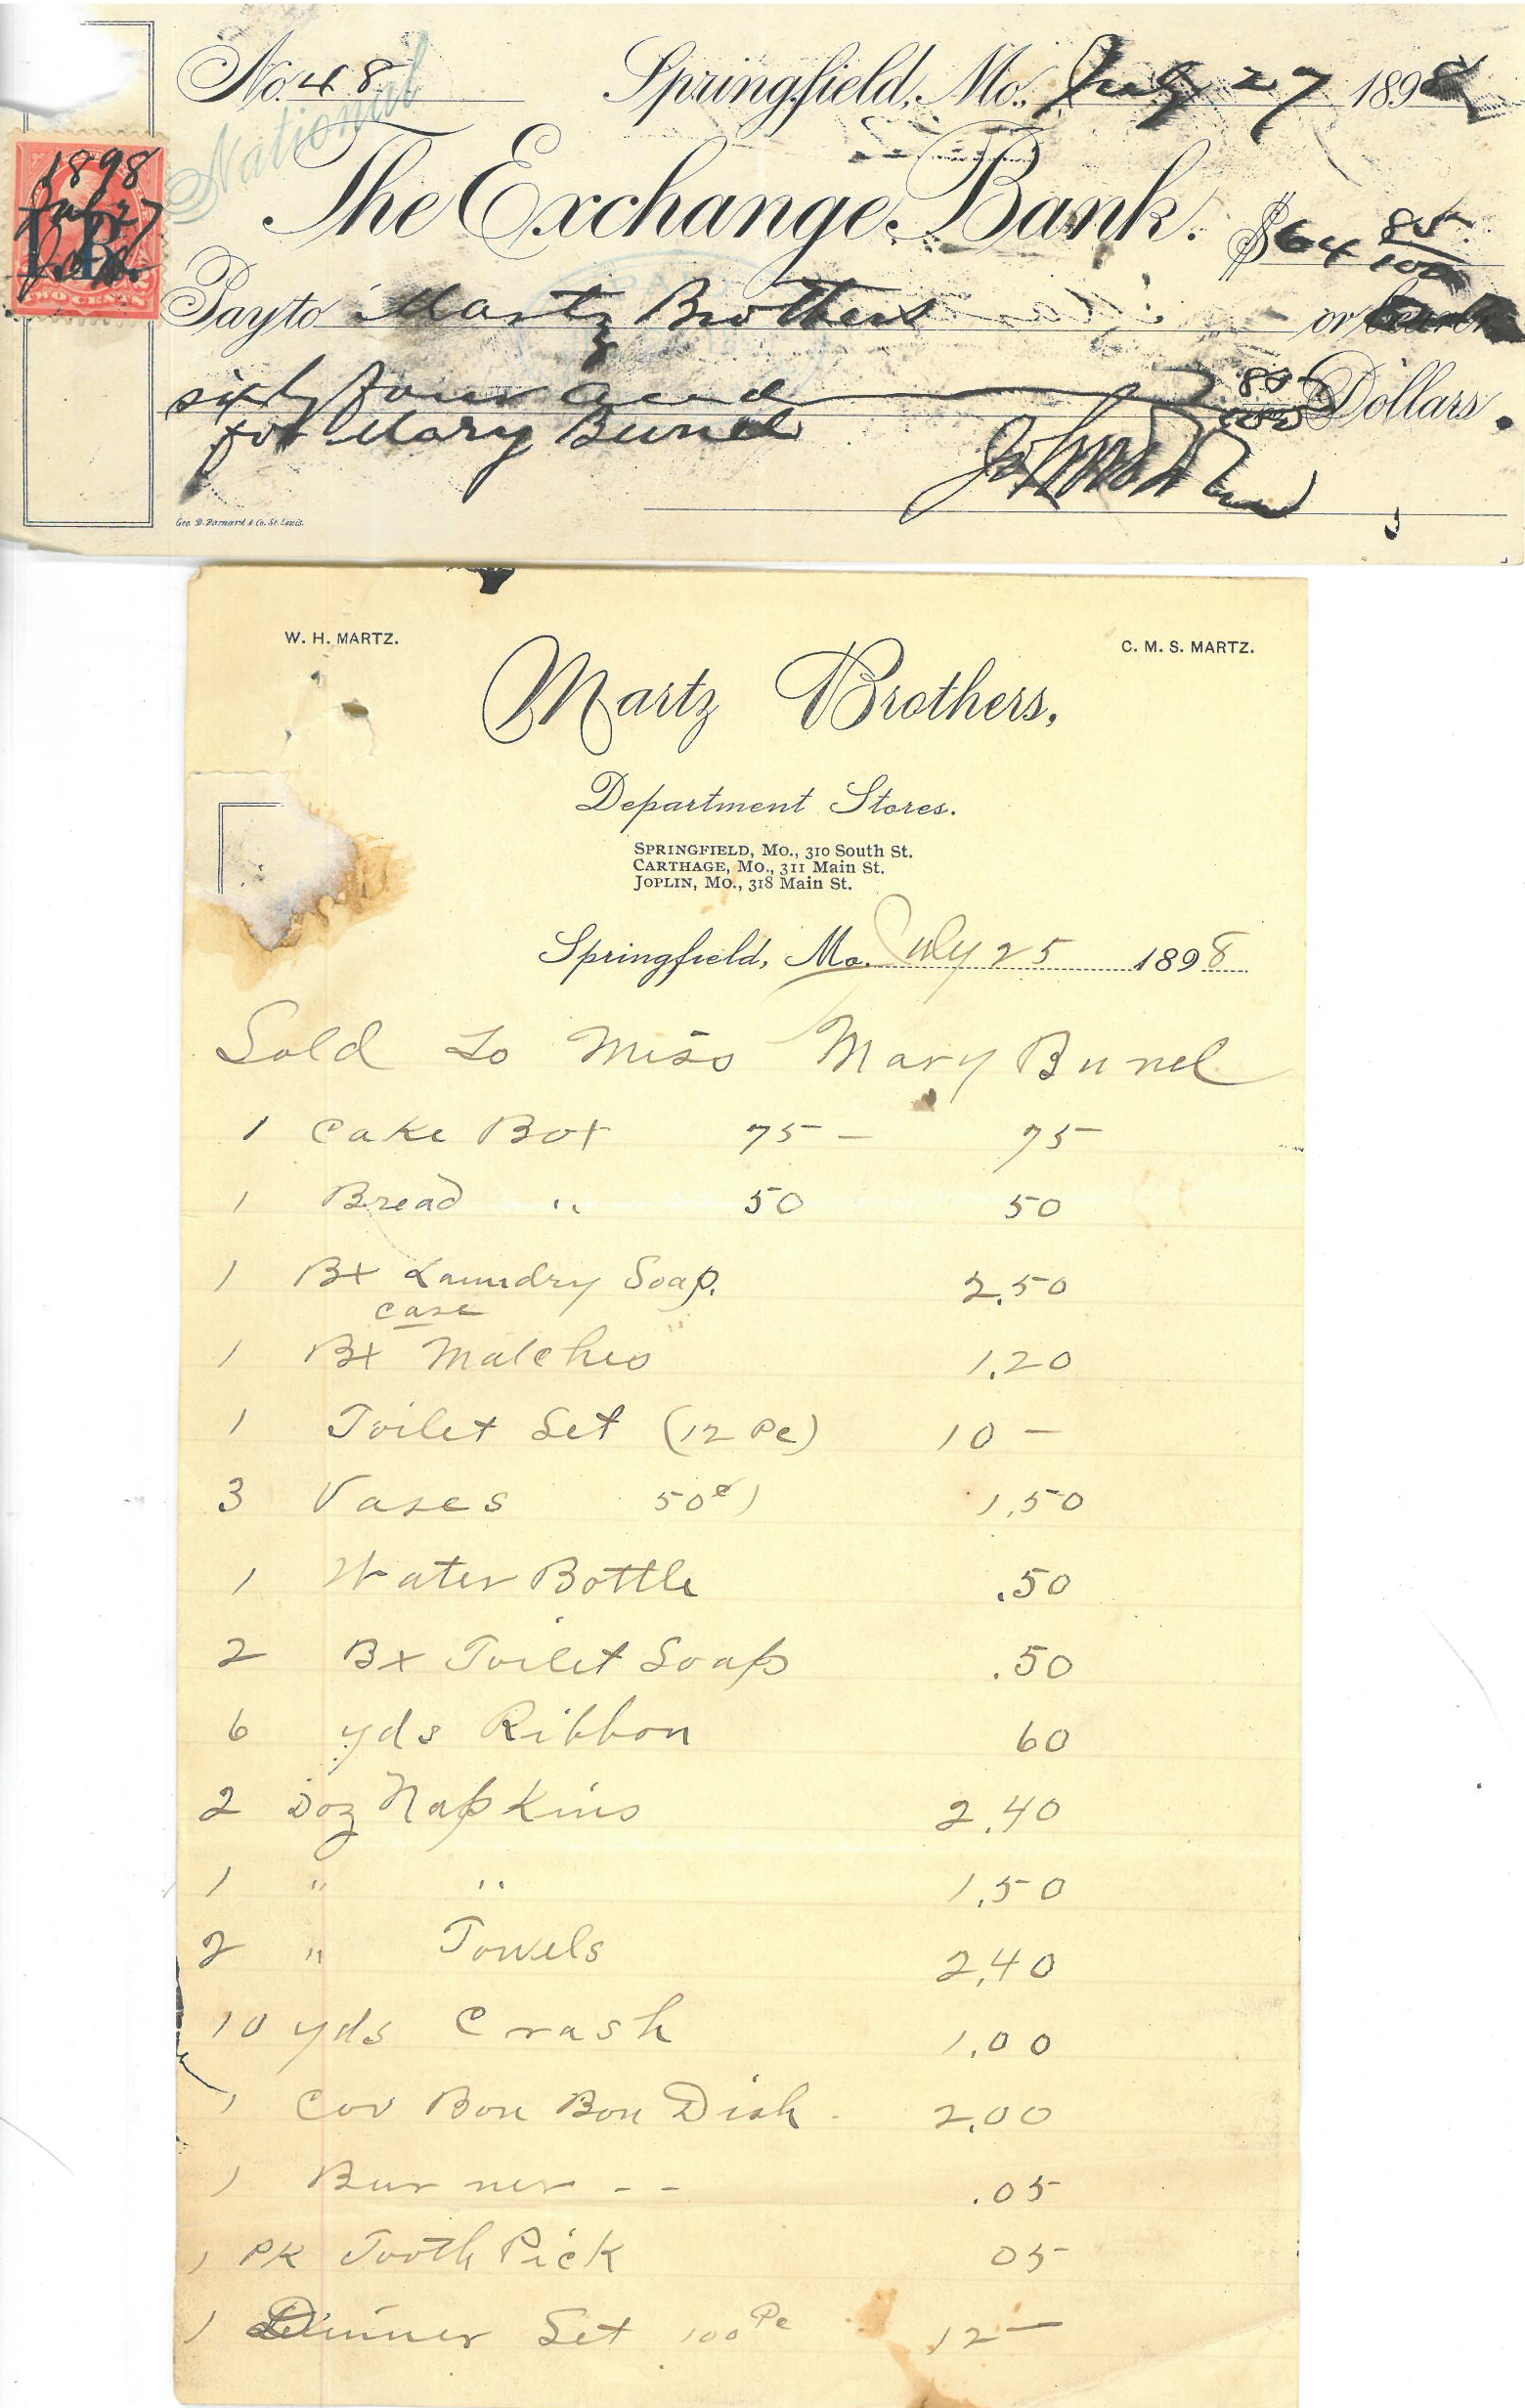 No. 48 Springfield, Mo., July 27 1898
National
The Exchange Bank.
$64 85/100
1898
July 27
TWO CENTS
Pay to Martz Brothers or
sixty four and 85/100 Dollars.
for Mary Bunel
Geo. D. Barnard & Co. St. Louis.
W. H. MARTZ. C. M. S. MARTZ.
Martz Brothers,
Department Stores.
SPRINGFIELD, MO., 310 South St.
CARTHAGE, MO., 311 Main St.
JOPLIN, MO., 318 Main St.
Springfield, Mo. July 25 1898
Sold to Miss Mary Bunel
1 Cake Box 75 - 75
1 Bread " 50 50
1 Bx Laundry Soap. 2.50
case
1 Bx Matches 1.20
1 Toilet Set (12 Pc) 10 -
3 Vases 50¢) 1.50
1 Water Bottle .50
2 Bx Toilet Soap .50
6 yds Ribbon 60
2 Doz Napkins 2.40
1 " " 1.50
2 " Towels 2.40
10 yds Crash 1.00
1 Cov Bon Bon Dish 2.00
1 Burner - - .05
1 PK Tooth Pick 05
1 Dinner Set 100 Pc 12 -